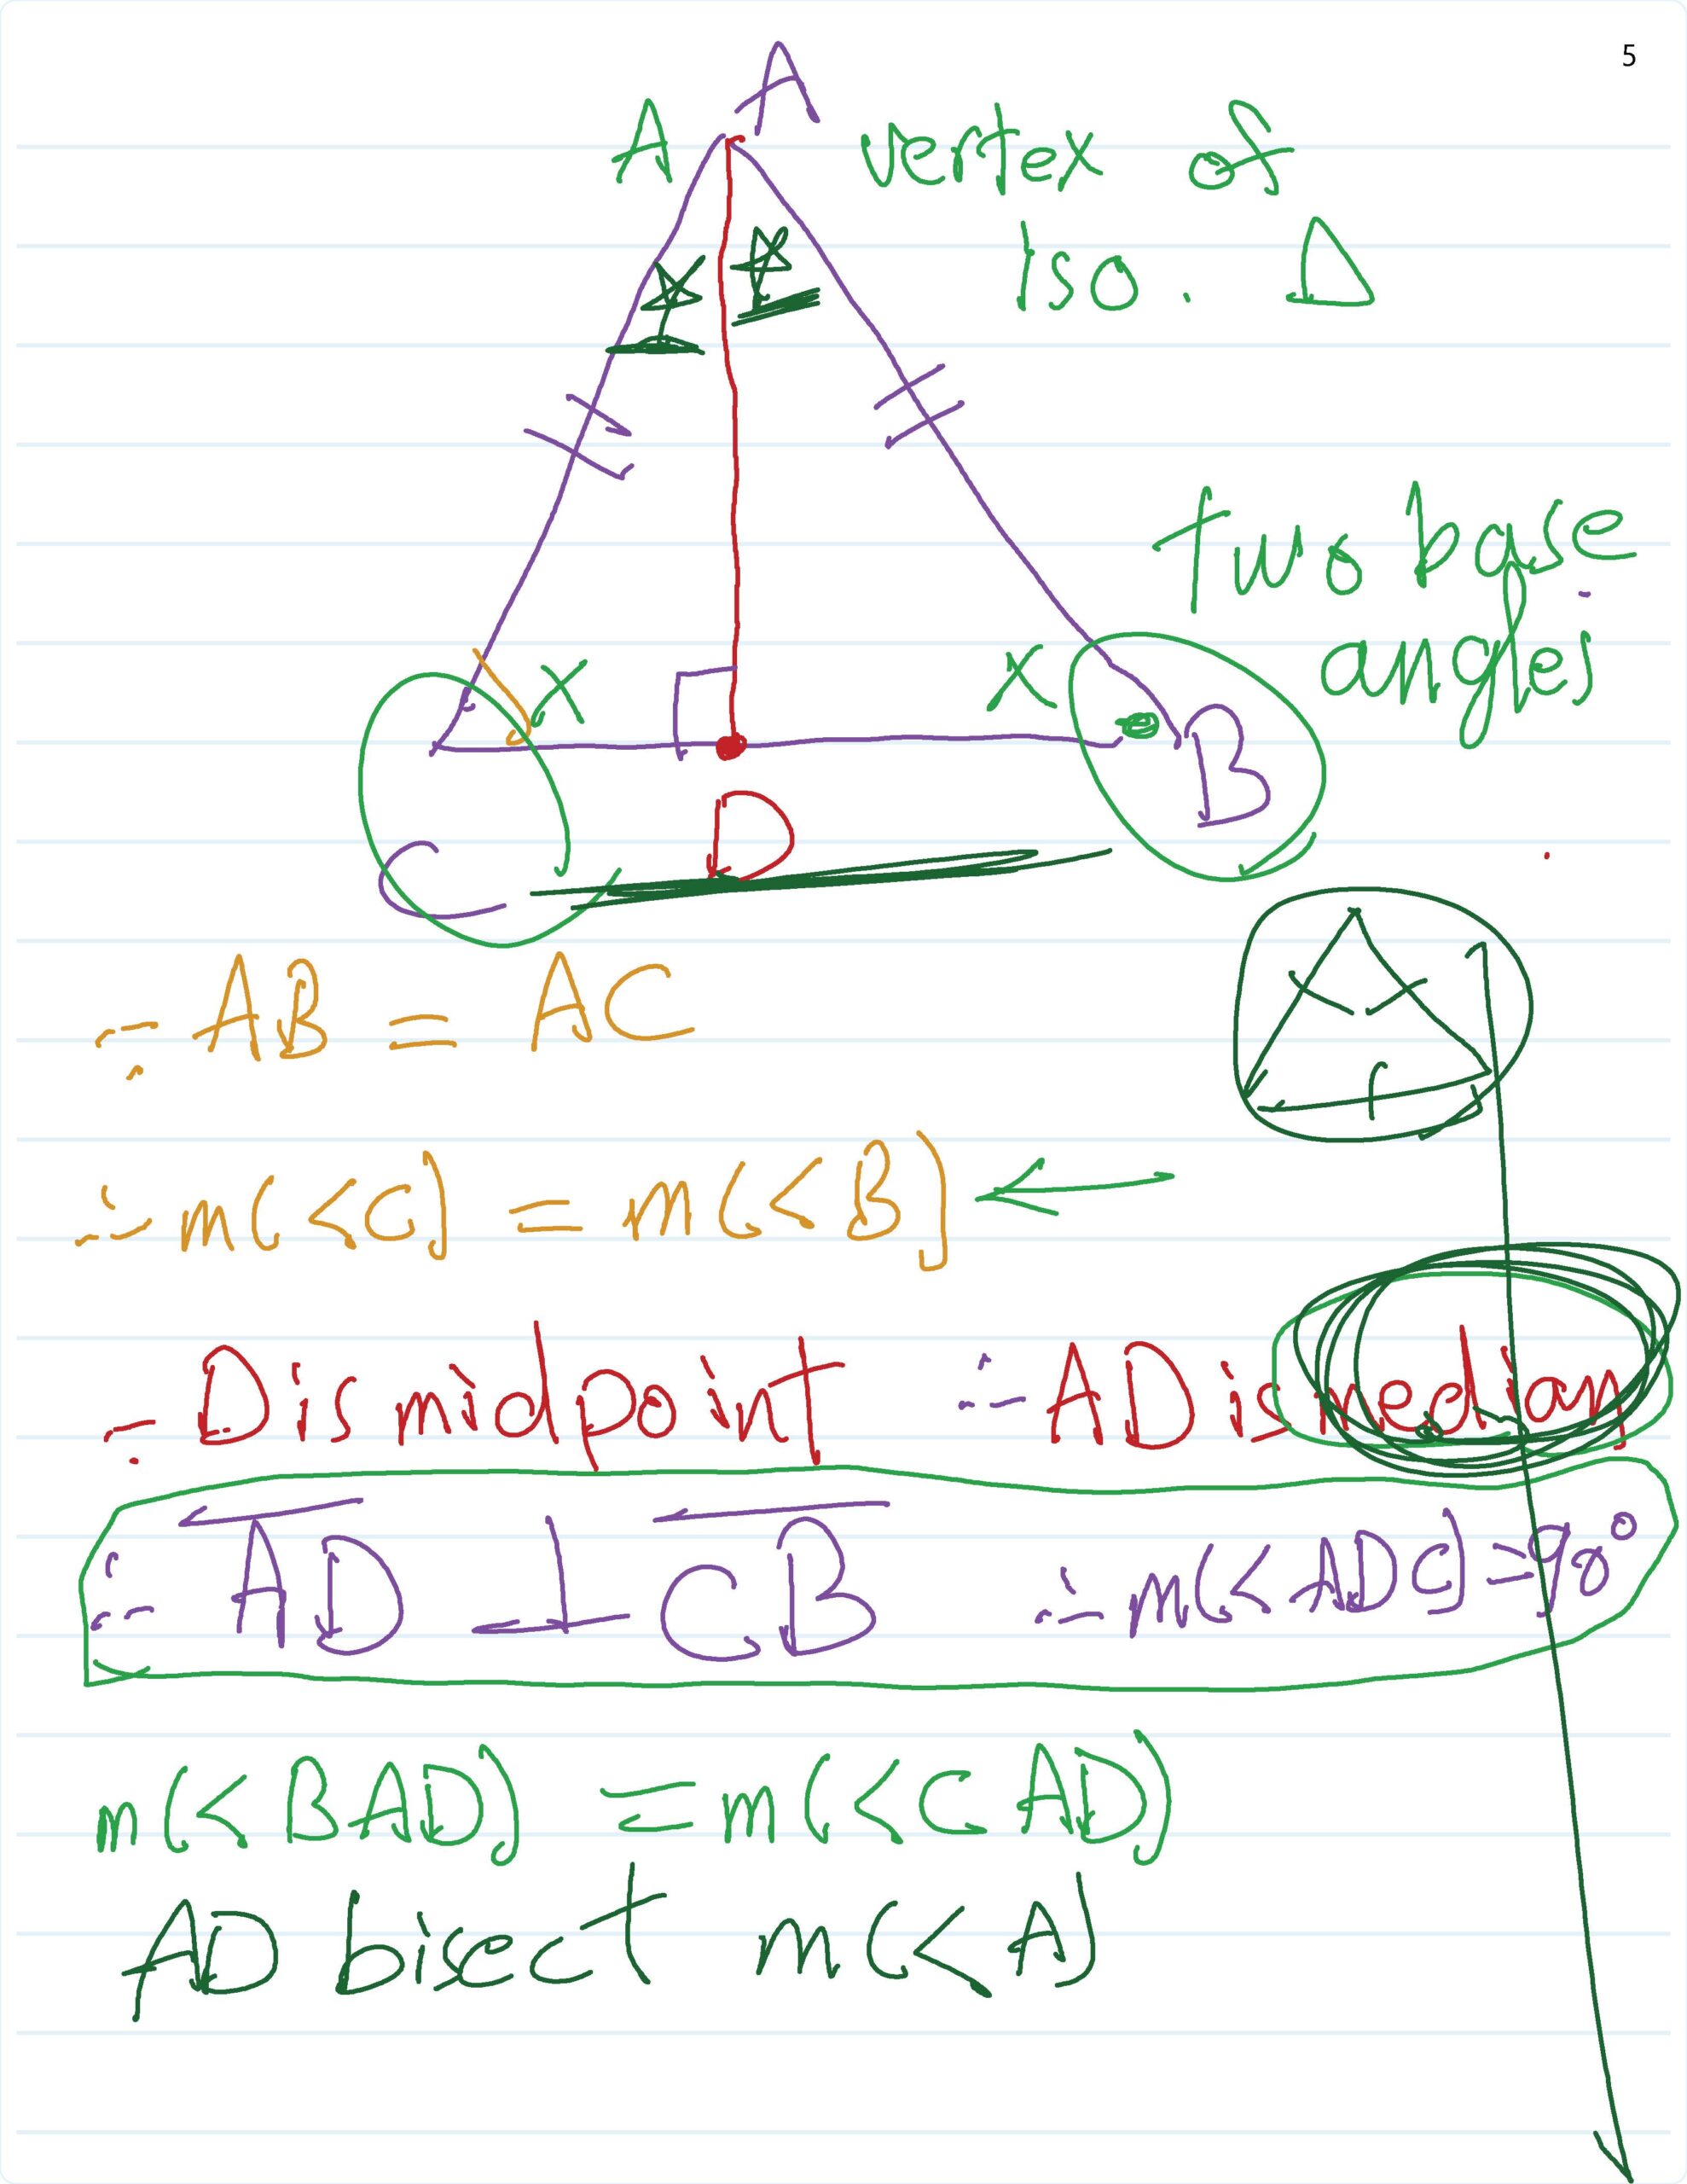 5
A
A vertex of
Iso. Δ
x x
two base
angles
B
D
C
∵ AB = AC
∴ m(<C) = m(<B)
∵ D is midpoint ∴ AD is median
∴ AD ⊥ CB ∴ m(<ADC) = 90°
m(<BAD) = m(<CAD)
AD bisect m(<A)